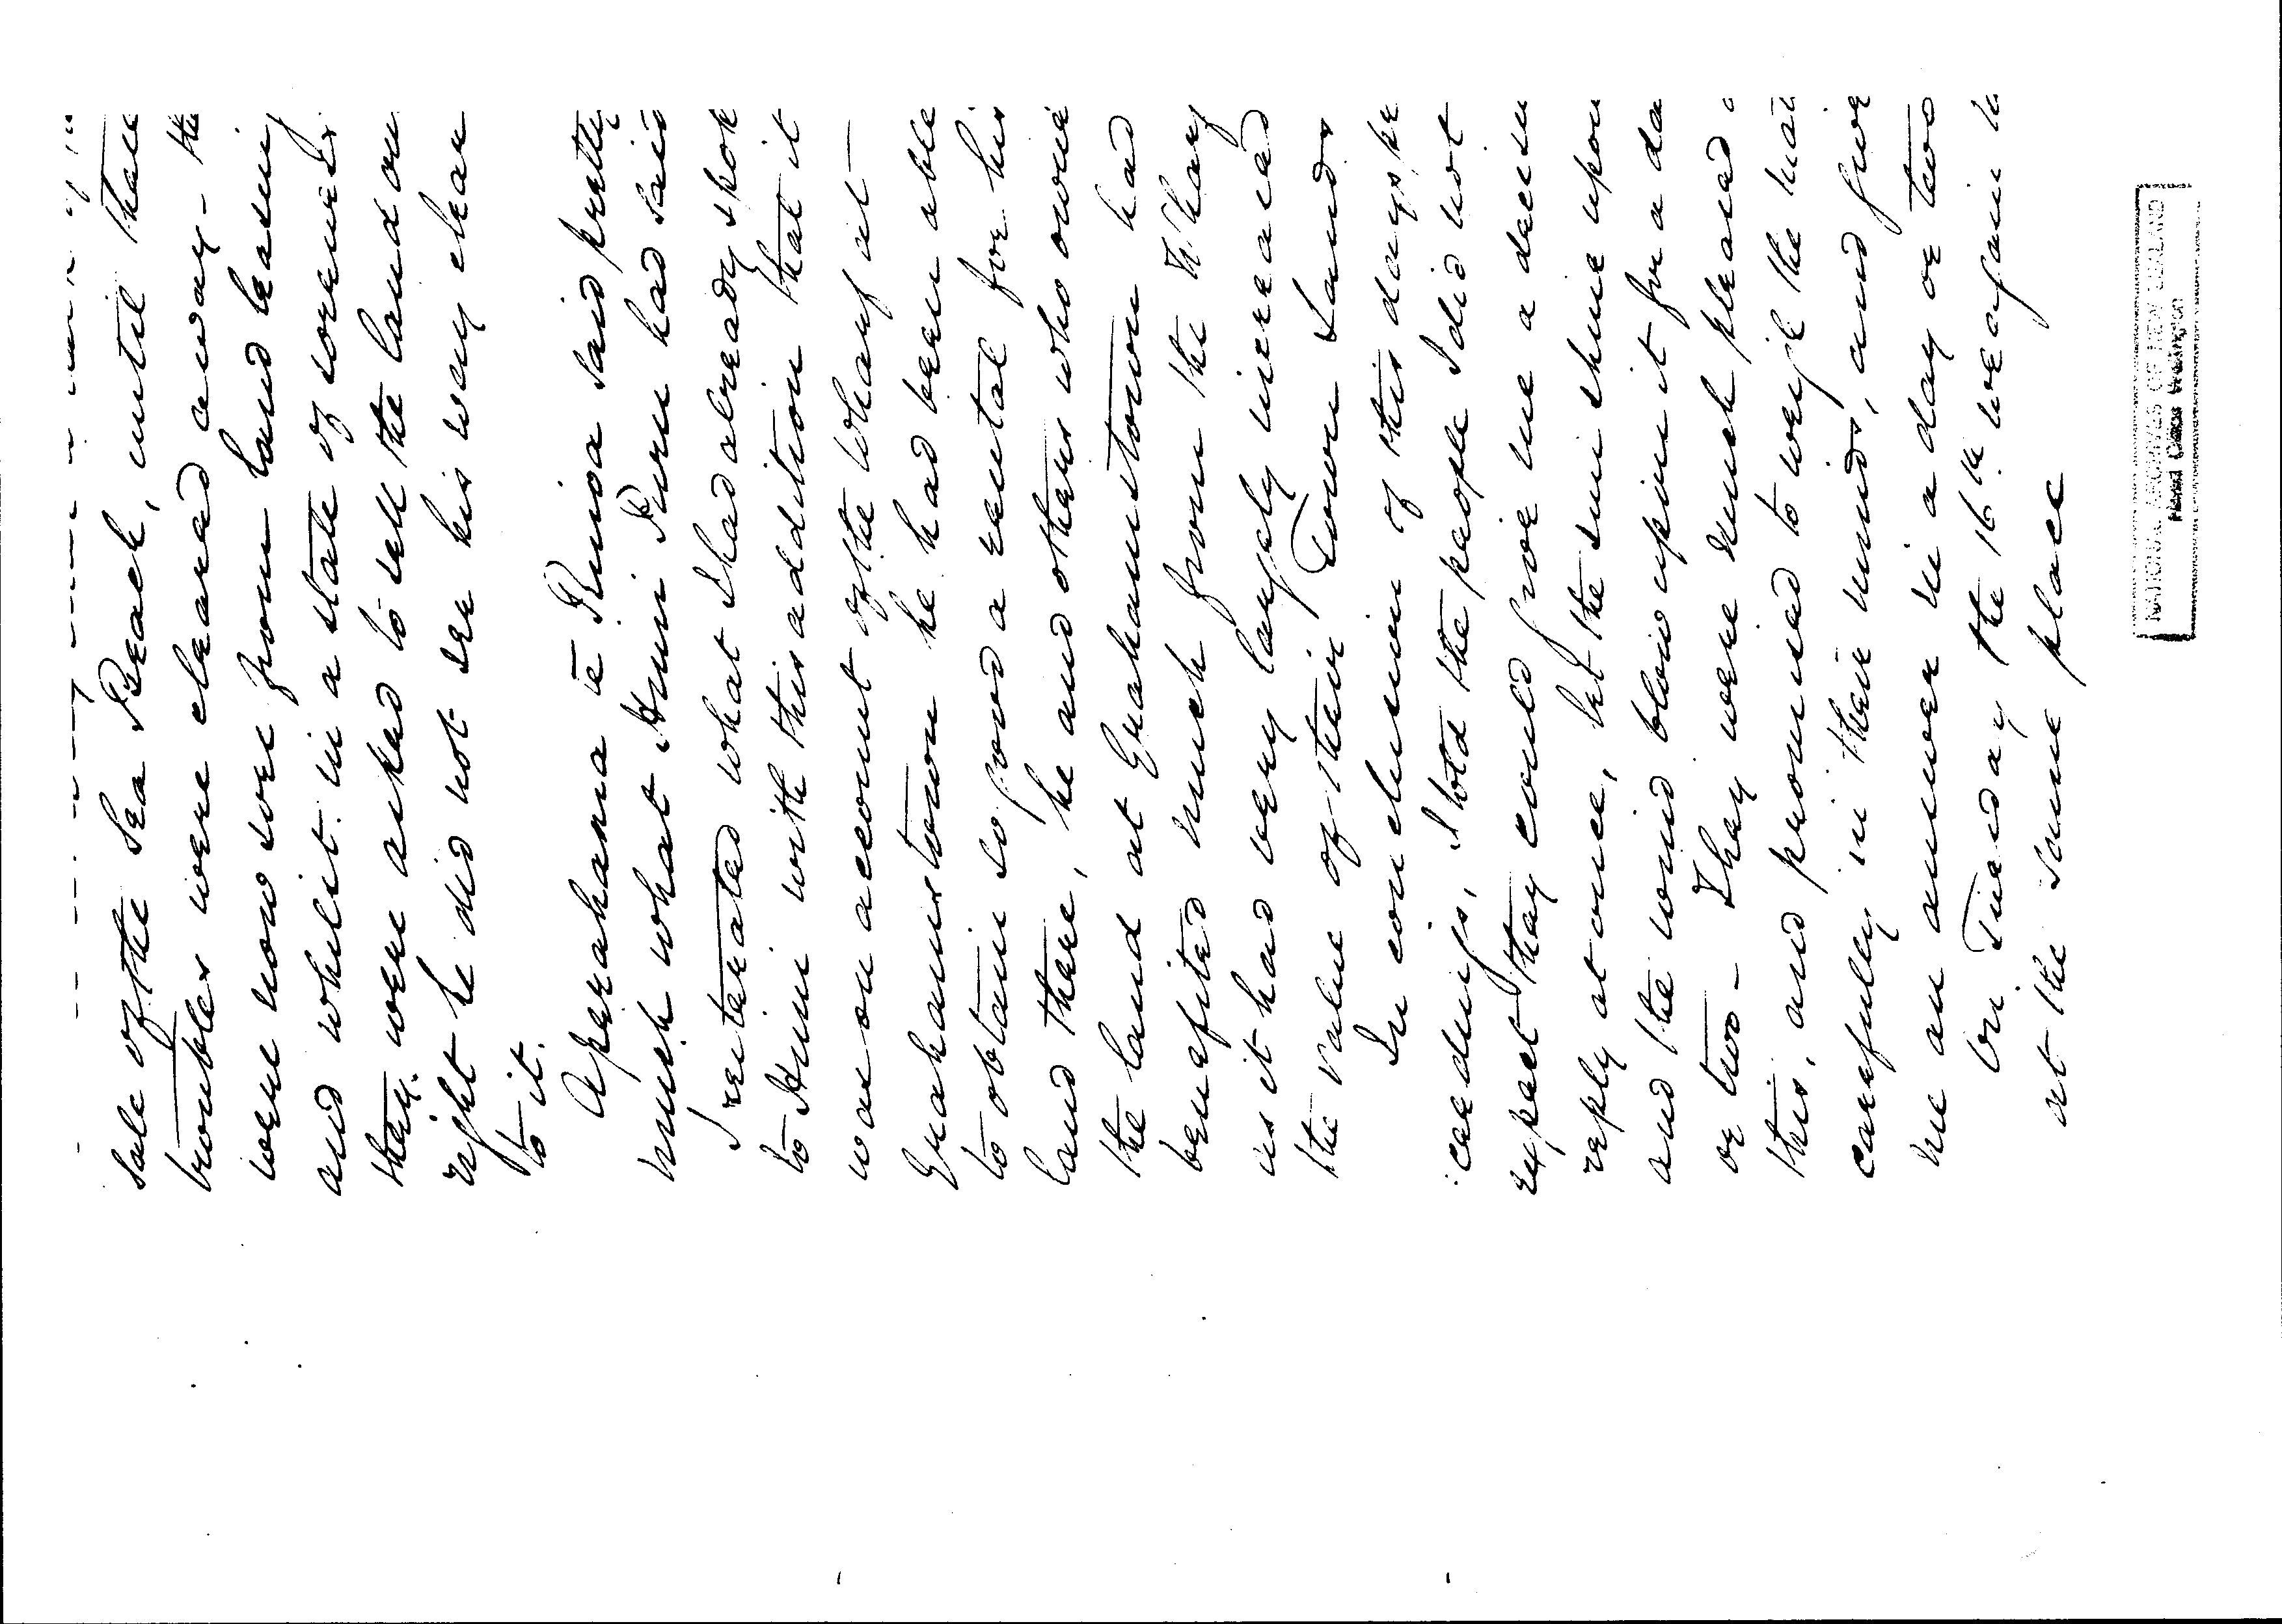 sale of the Sea Beach, until these
troubles were cleared away - the
were now sore from hand leasing
and whilst in a state of soreness
they were asked to sell the land on
right he did not see his way clear
to it.
Aperahama te Reiroa said pretty
much what Huni Puru had said
I reiterated what I had already spok
to Huni with this addition that it
was on account of the wharf at
Grahamstown he had been able
to obtain so good a rental for his
land there, he and others who owne
the land at Grahamstown had
benefited much from the Wharf
as it had very largely increased
the value of their Town Lands
In conclusion of this days pr
:ceedings, I told the people I did not
expect they could give me a decisi
reply at once, let the sun shine upon
and the wind blow upon it for a da
or two - They were much pleased
this, and promised to weigh the mat
carefully in their minds, and give
me an answer in a day or two
On Tuesday the 16th. we again
at the same place
NATIONAL ARCHIVES OF NEW ZEALAND
Head Office Wellington